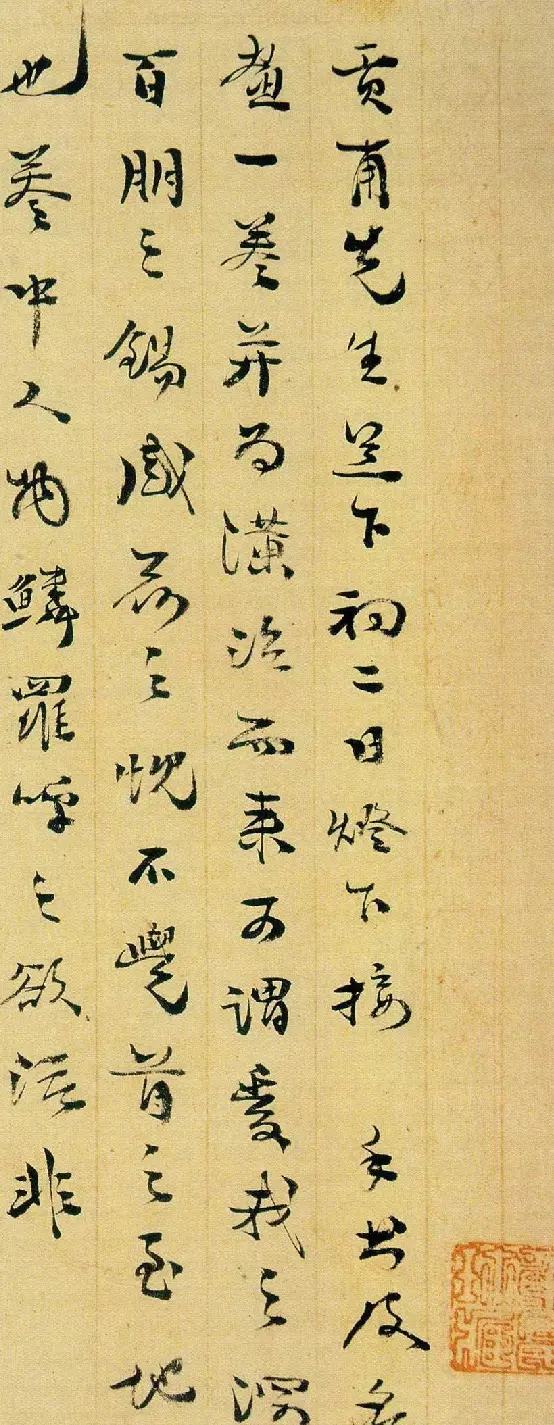 貢甫先生足下初二日燈下接 手書及名
畫一卷并為潢治而來可謂愛我之深
百朋之錫感荷之忱不覺首之至地
也卷中人物鱗羅呼之欲活非